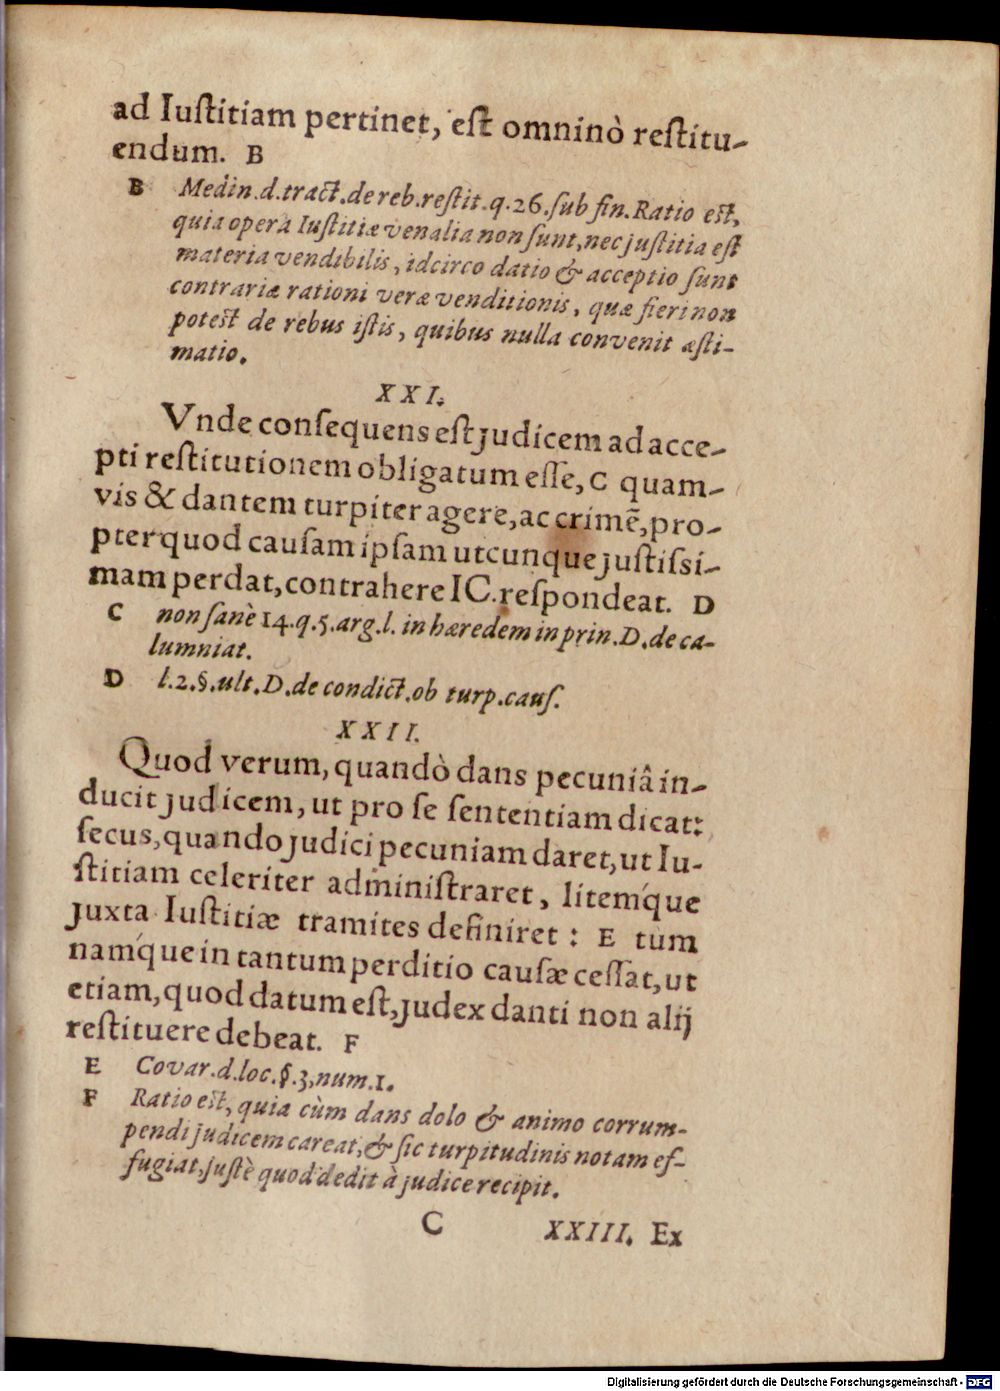 ad Iuſtitiam pertinet, eſt omninò reſtitu-
endum. B
B Medin.d.tract.de reb.reſtit.q.26.ſub fin.Ratio eſt,
quia opera Iuſtitiæ venalia non ſunt, nec juſtitia eſt
materia vendibilis, idcirco datio & acceptio ſunt
contrariæ rationi veræ venditionis, quæ fieri non
poteſt de rebus iſtis, quibus nulla convenit æſti-
matio.
XXI.
Vnde conſequens eſt judicem ad acce-
pti reſtitutionem obligatum eſſe, C quam-
vis & dantem turpiter agere, ac crimē, pro-
pter quod cauſam ipſam utcunque juſtiſsi-
mam perdat, contrahere IC. reſpondeat. D
C non ſanè 14.q.5.arg.l. in hæredem in prin.D.de ca-
lumniat.
D l.2.§.ult.D.de condict.ob turp.cauſ.
XXII.
Quod verum, quandò dans pecuniâ in-
ducit judicem, ut pro ſe ſententiam dicat:
ſecus, quando judici pecuniam daret, ut Iu-
ſtitiam celeriter adminiſtraret, liteḿque
juxta Iuſtitiæ tramites definiret: E tum
namq́ue in tantum perditio cauſæ ceſſat, ut
etiam, quod datum eſt, judex danti non alij
reſtituere debeat. F
E Covar.d.loc.§.3,num.1.
F Ratio eſt, quia cùm dans dolo & animo corrum-
pendi judicem careat, & ſic turpitudinis notam ef-
fugiat, juſtè quod dedit à judice recipit.
C XXIII. Ex
Digitalisierung gefördert durch die Deutsche Forschungsgemeinschaft - DFG